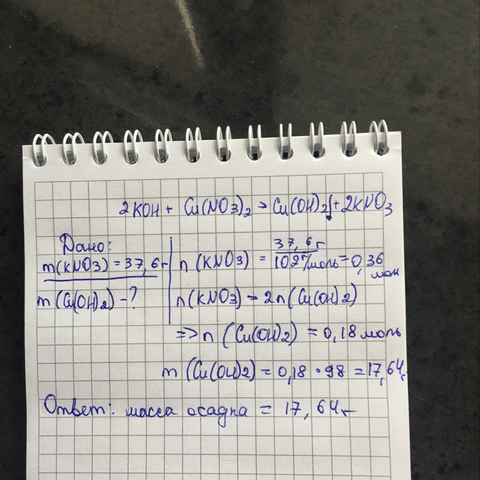 2KOH + Cu(NO3)2 > Cu(OH)2↓ + 2KNO3
Дано:
m(KNO3) = 37,6 г
m(Cu(OH)2) - ?
n(KNO3) = 37,6 г / 102 г/моль = 0,36 мол
n(KNO3) = 2n(Cu(OH)2)
=> n(Cu(OH)2) = 0,18 моль
m(Cu(OH)2) = 0,18 • 98 = 17,64г
Ответ: масса осадка = 17,64г